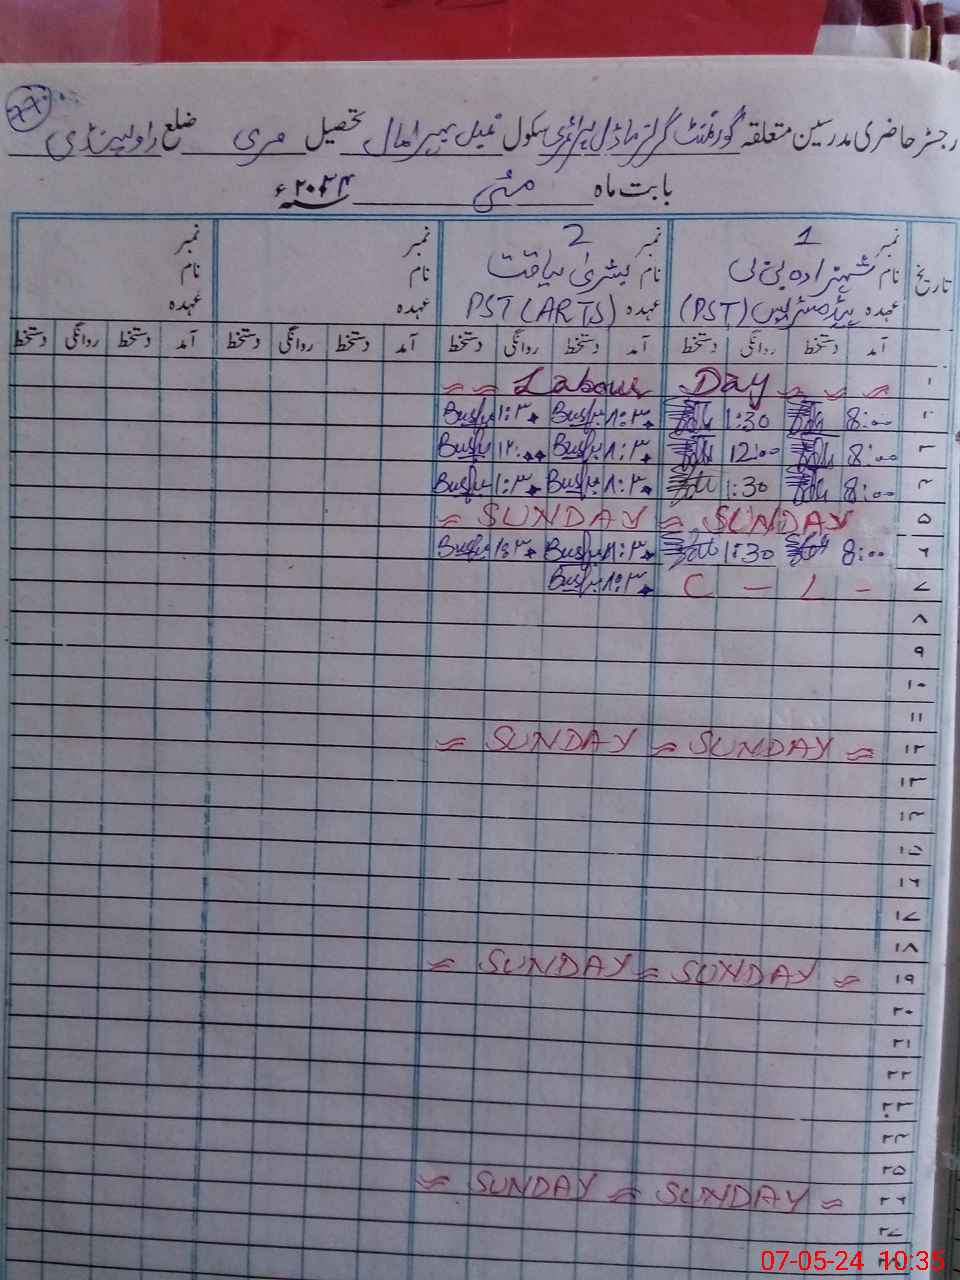 رجسٹر حاضری مدرسین متعلقہ گورنمنٹ گرلز ماڈل پرائمری سکول تحصیل مری ضلع راولپنڈی
بابت ماہ مئی ۲۰۲۴ء
تاریخ نمبر 1 نمبر 2 نمبر نمبر
نام شہزادہ بی بی نام بشریٰ لیاقت نام نام
عہدہ ہیڈمسٹریس (PST) عہدہ PST (ARTS) عہدہ عہدہ
آمد دستخط روانگی دستخط آمد دستخط روانگی دستخط آمد دستخط روانگی دستخط آمد دستخط روانگی دستخط
۱ Labour Day
۲ 8:00 1:30 ۸:۳۰ Bushra ۱:۳۰ Bushra
۳ 8:00 12:00 ۸:۳۰ Bushra ۱۲:۰۰ Bushra
۴ 8:00 1:30 ۸:۳۰ Bushra ۱:۳۰ Bushra
۵ SUNDAY SUNDAY
۶ 8:00 1:30 ۸:۳۰ Bushra ۱:۳۰ Bushra
۷ C - L - ۸:۳۰ Bushra
۸
۹
۱۰
۱۱
۱۲ SUNDAY SUNDAY
۱۳
۱۴
۱۵
۱۶
۱۷
۱۸
۱۹ SUNDAY SUNDAY
۲۰
۲۱
۲۲
۲۳
۲۴
۲۵
۲۶ SUNDAY SUNDAY
۲۷
۲۸
07-05-24 10:35